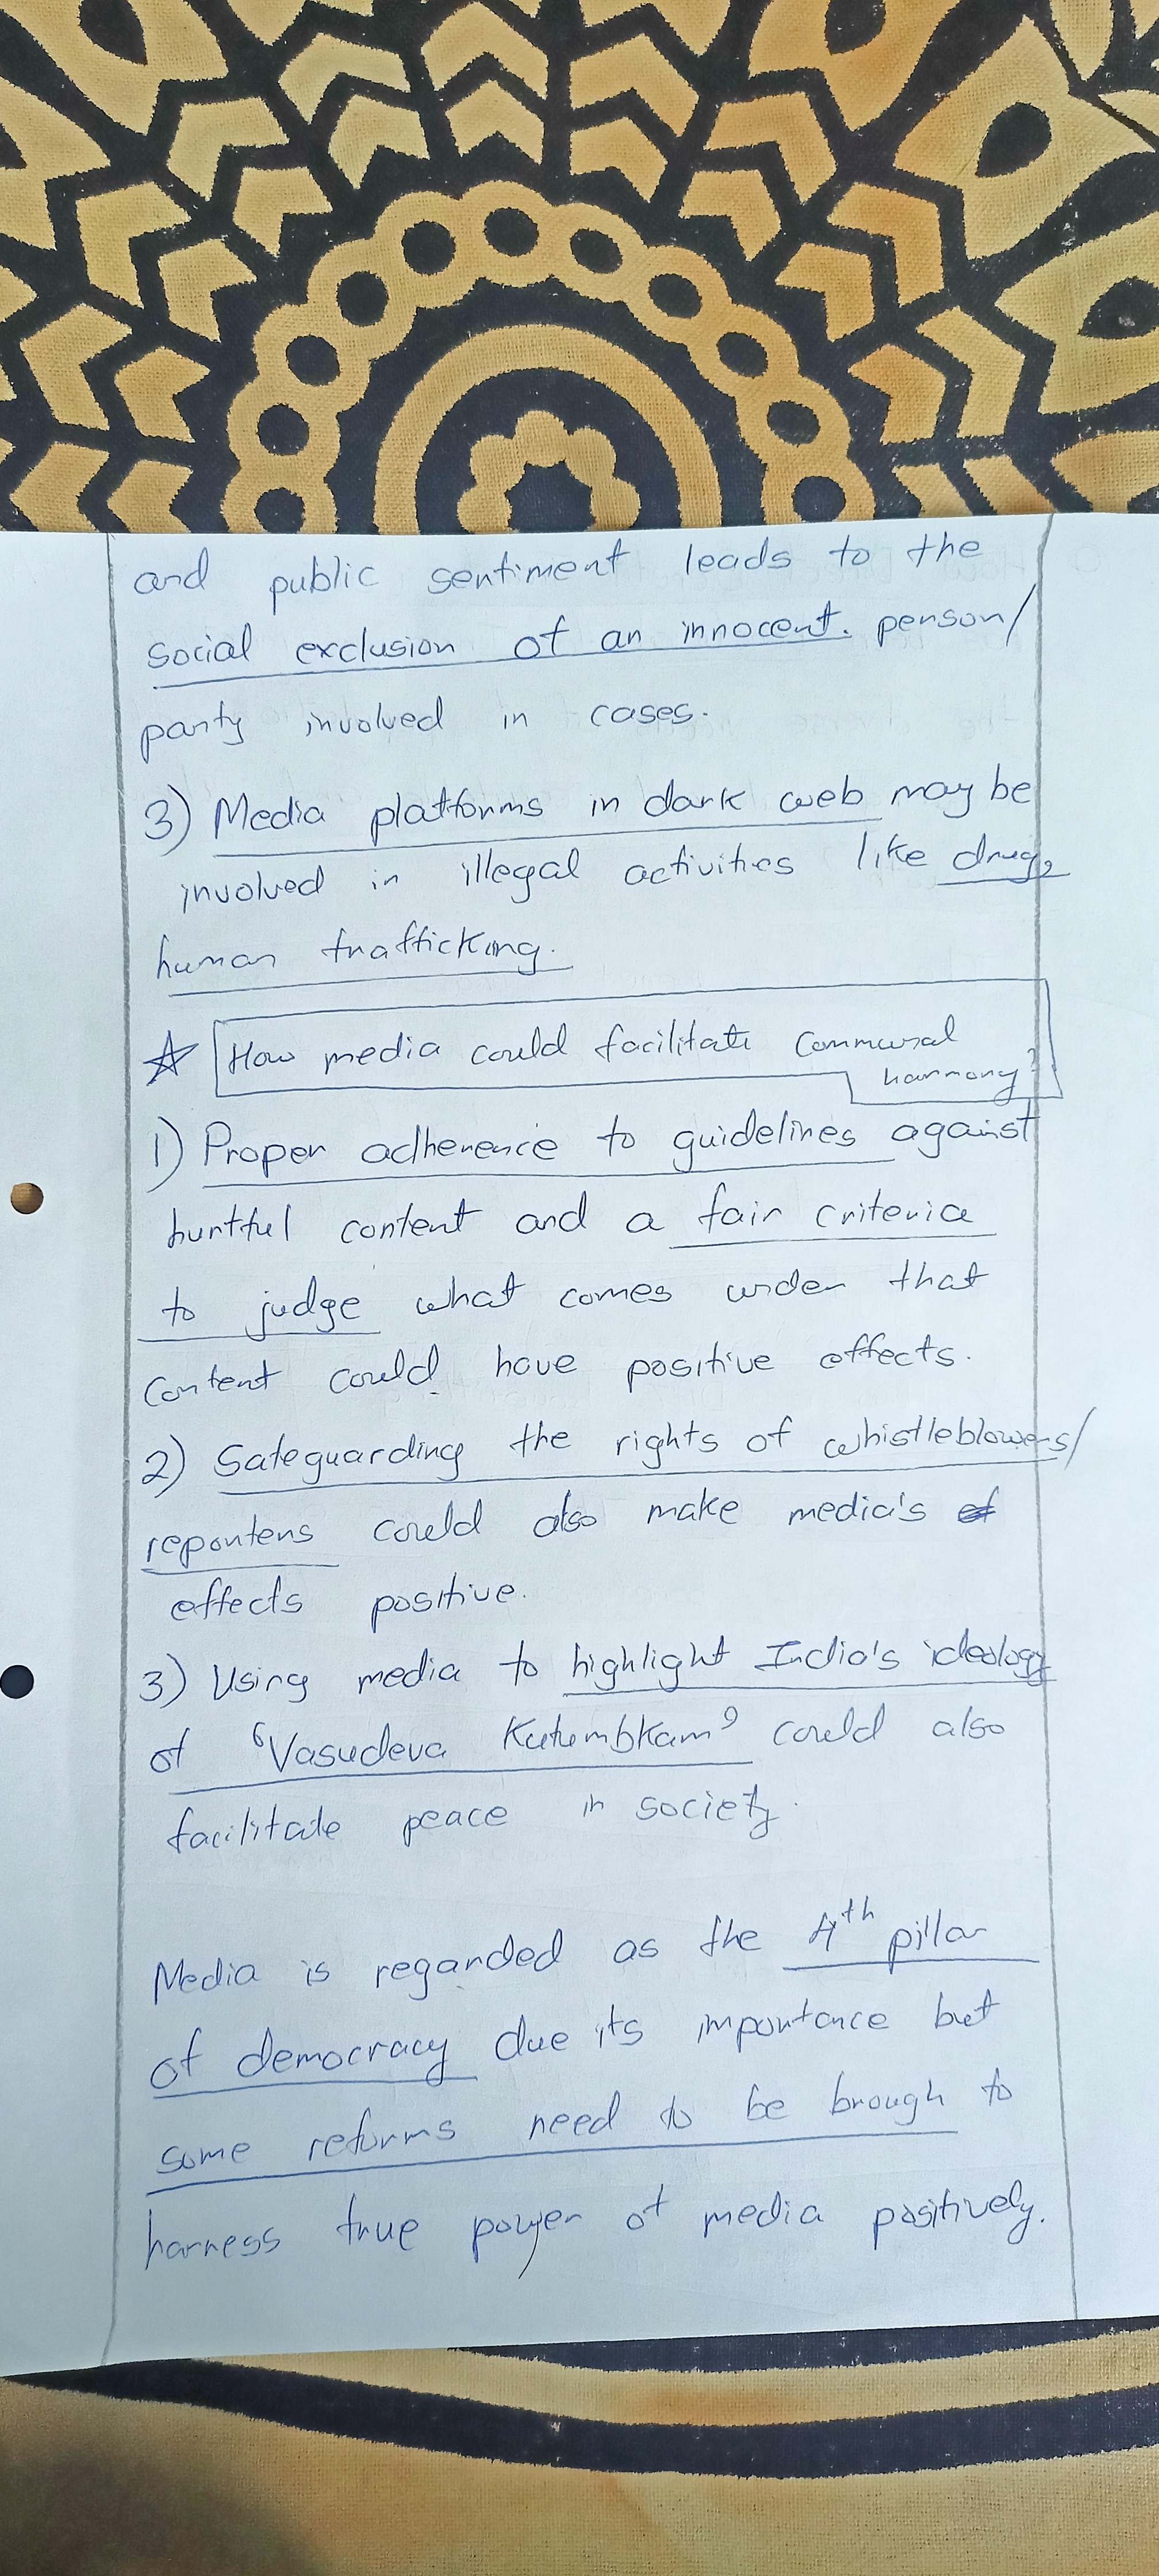 and public sentiment leads to the
social exclusion of an innocent. person/
party involved in cases.
3) Media platforms in dark web may be
involved in illegal activities like drug,
human trafficking.
☆ How media could facilitate Communal
harmony?
1) Proper adherence to guidelines against
hurtful content and a fair criteria
to judge what comes under that
content could have positive effects.
2) Safeguarding the rights of whistleblowers/
reporters could also make media's ef
effects positive.
3) Using media to highlight India's ideology
of 'Vasudeva Kutumbkam' could also
facilitate peace in society.
Media is regarded as the 4th pillar
of democracy due its importance but
some reforms need to be brough to
harness true power of media positively.